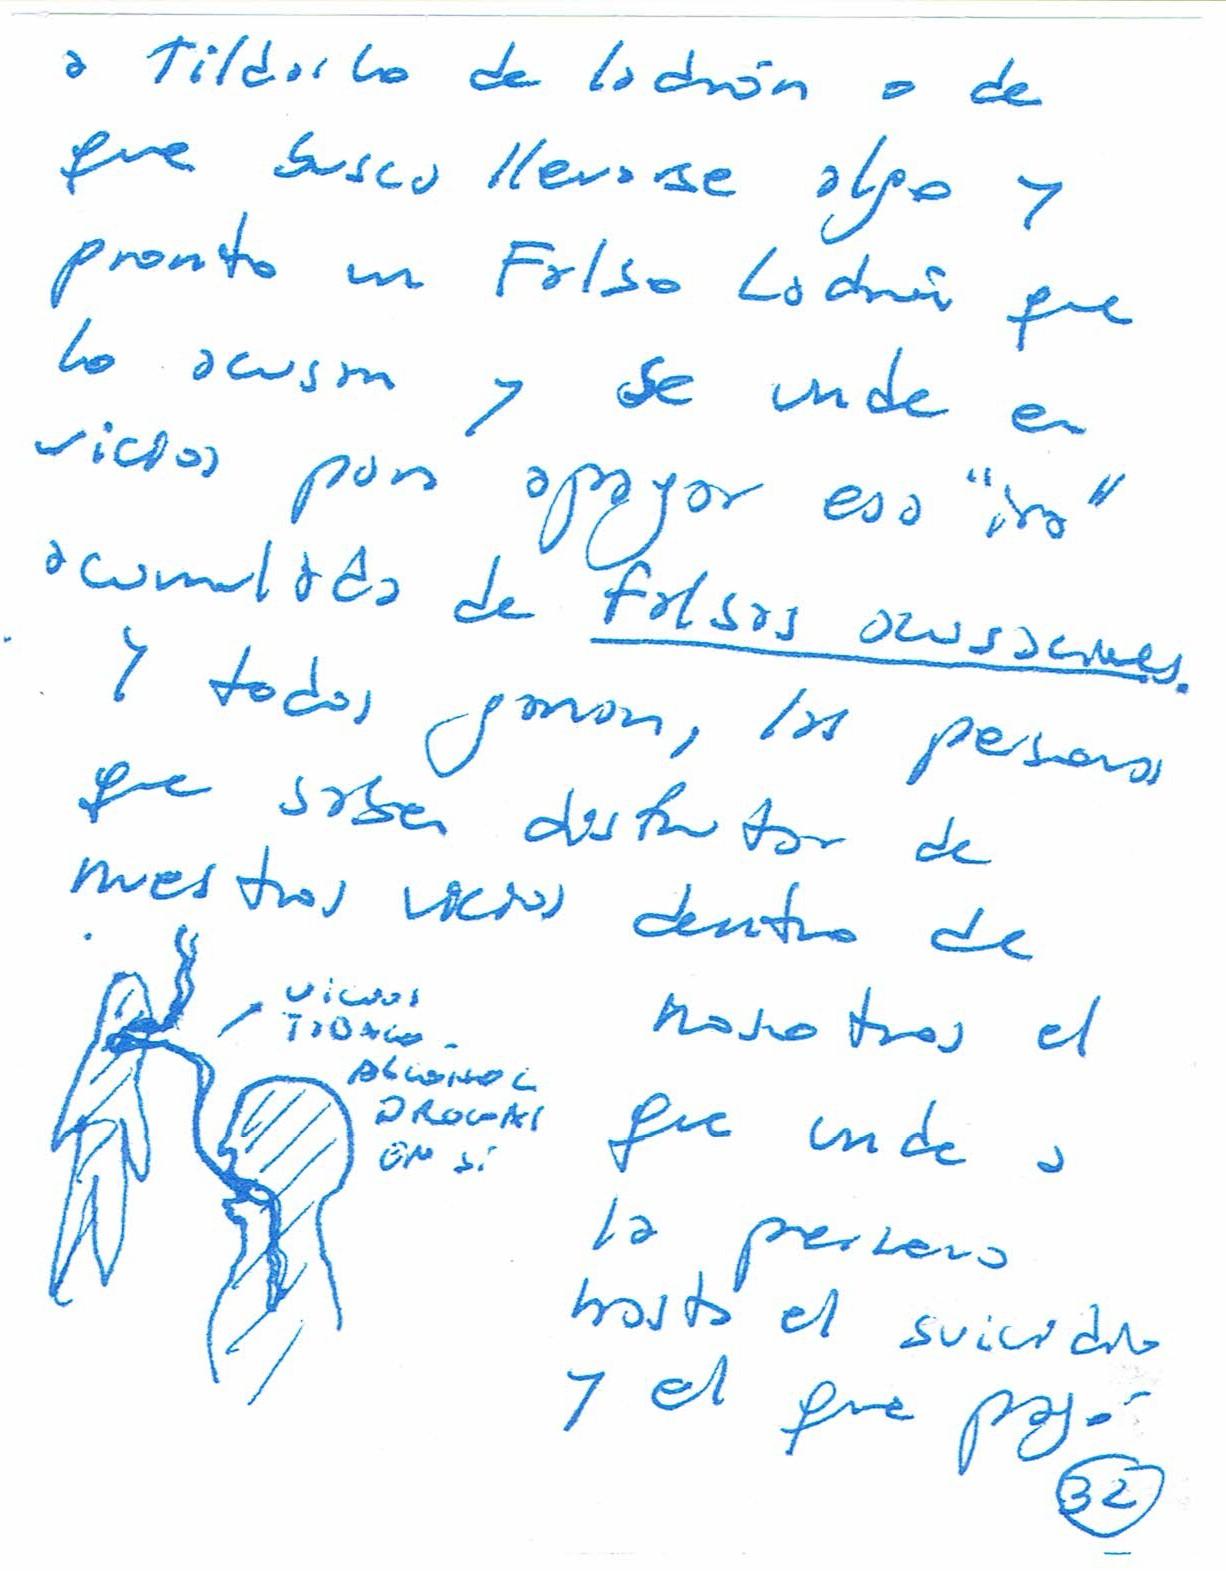 a Tildarlo de ladrón o de
que busca llevarse algo y
pronto un Falso Ladrón que
lo acusan y se unde en
vicios para apagar esa "ira"
acumulada de falsas acusaciones.
Y todos ganan, las personas
que saben disfrutar de
nuestros vicios dentro de
nosotros el
que unde a
la persona
hasta el suicidio
y el que pagó
vicios
TABACO -
ALCOHOL
DROGAS
EN SÍ
32